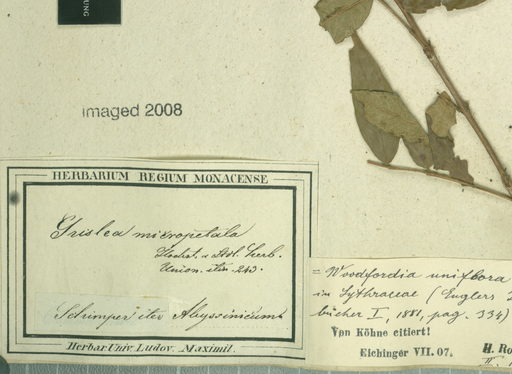 UNG
imaged 2008
HERBARIUM REGIUM MONACENSE
Grislea micropetala
Hochst. & Stdl. herb.
Union. itin. 243.
Schimper iter Abyssinicum
Herbar. Univ. Ludov. Maximil.
= Woodfordia uniflora
in Lythraceae (Englers
bücher I, 1881, pag. 334)
Von Köhne citiert!
Eichinger VII. 07.
H. Ro